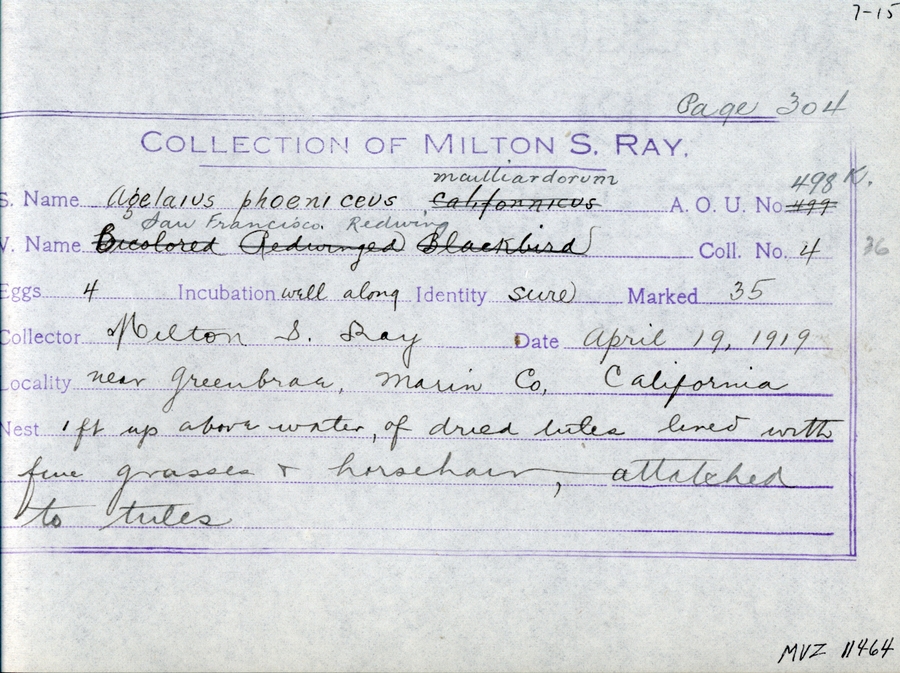 7-15
Page 304
COLLECTION OF MILTON S. RAY.
mailliardorum 498 K.
S. Name Agelaius phoeniceus californicus A. O. U. No. 499
San Francisco Redwing
V. Name Bicolored Redwinged Blackbird Coll. No. 4 36
Eggs 4 Incubation well along Identity sure Marked 35
Collector Milton S. Ray Date April 19, 1919
Locality near Greenbrae, Marin Co, California
Nest 1 ft up above water, of dried tules lined with
fine grasses + horsehair, attatched
to tules
MVZ 11464